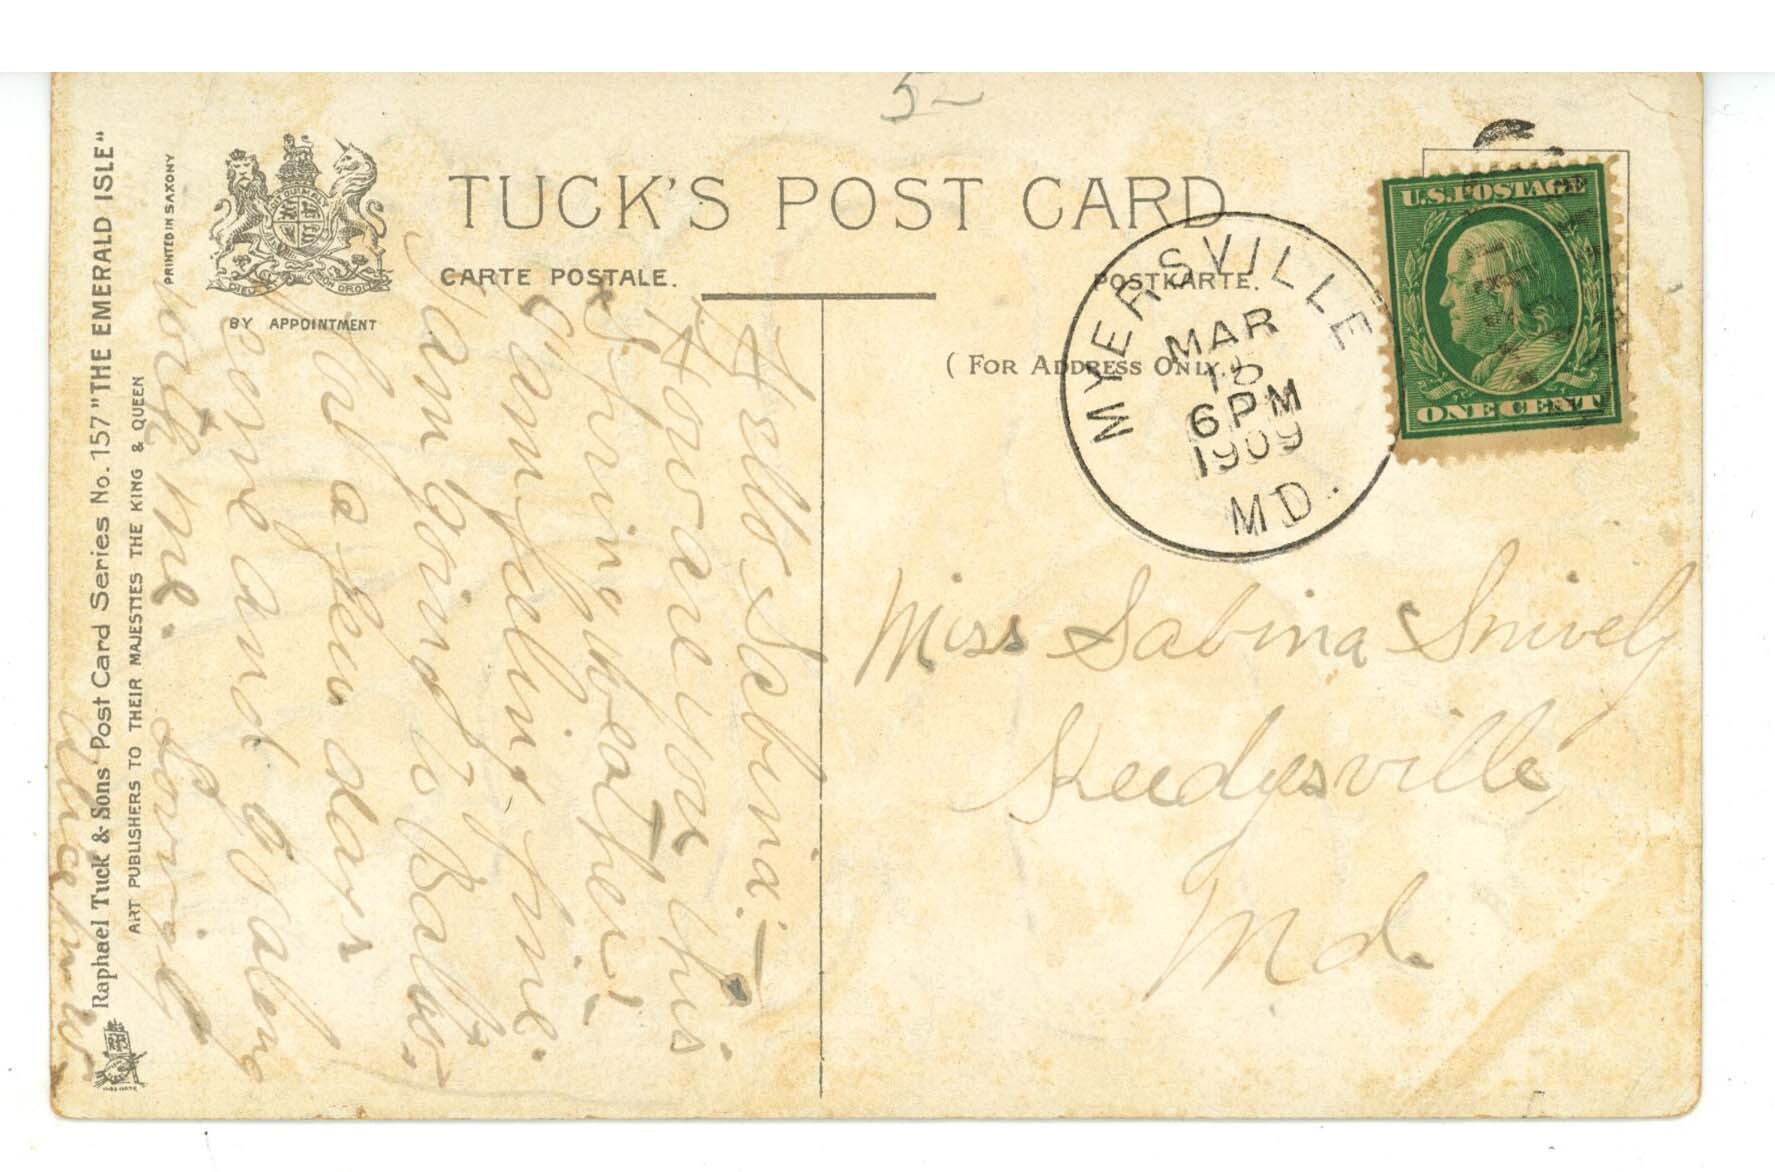 5-
TUCK'S POST CARD
CARTE POSTALE.
POSTKARTE.
(For Address Only.)
BY APPOINTMENT
DIEU ET MON DROIT
PRINTED IN SAXONY
Raphael Tuck & Sons' Post Card Series No. 157 "THE EMERALD ISLE"
ART PUBLISHERS TO THEIR MAJESTIES THE KING & QUEEN
MYERSVILLE
MAR
6 PM
1909
MD.
U.S. POSTAGE
ONE CENT
Hello Sabina:—
How are you this
Spring weather!
I am feeling fine.
I am going to Balto.
for a few days
Come and go along
with me. Loving
Miss Sabina Snively
Keedysville,
Md.